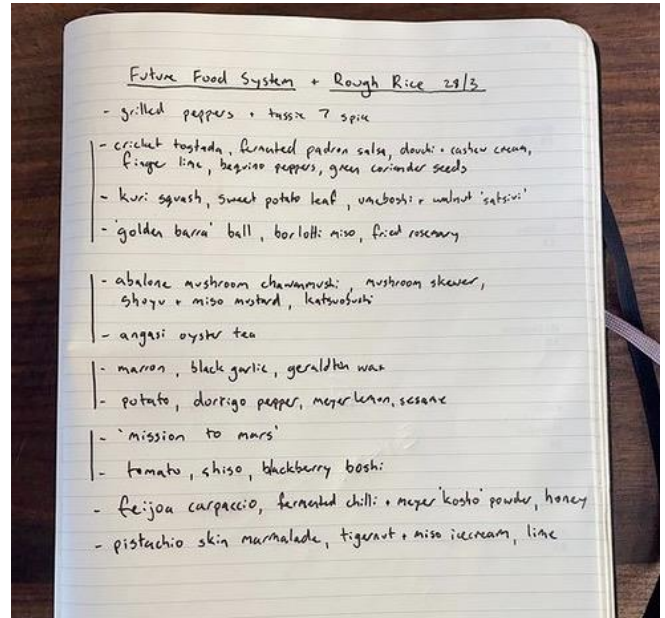 Future Food System + Rough Rice 28/3
- grilled peppers + tassie 7 spice
- cricket tostada, fermented padron salsa, douchi + cashew cream,
finger lime, bequino peppers, green coriander seeds
- kuri squash, sweet potato leaf, umeboshi + walnut 'satsivi'
- 'golden barra' ball, borlotti miso, fried rosemary
- abalone mushroom chawanmushi, mushroom skewer,
shoyu + miso mustard, katsuobushi
- angasi oyster tea
- marron, black garlic, geraldton wax
- potato, dorrigo pepper, meyer lemon, sesame
- 'mission to mars'
- tomato, shiso, blackberry boshi
- feijoa carpaccio, fermented chilli + meyer 'kosho' powder, honey
- pistachio skin marmalade, tigernut + miso icecream, lime